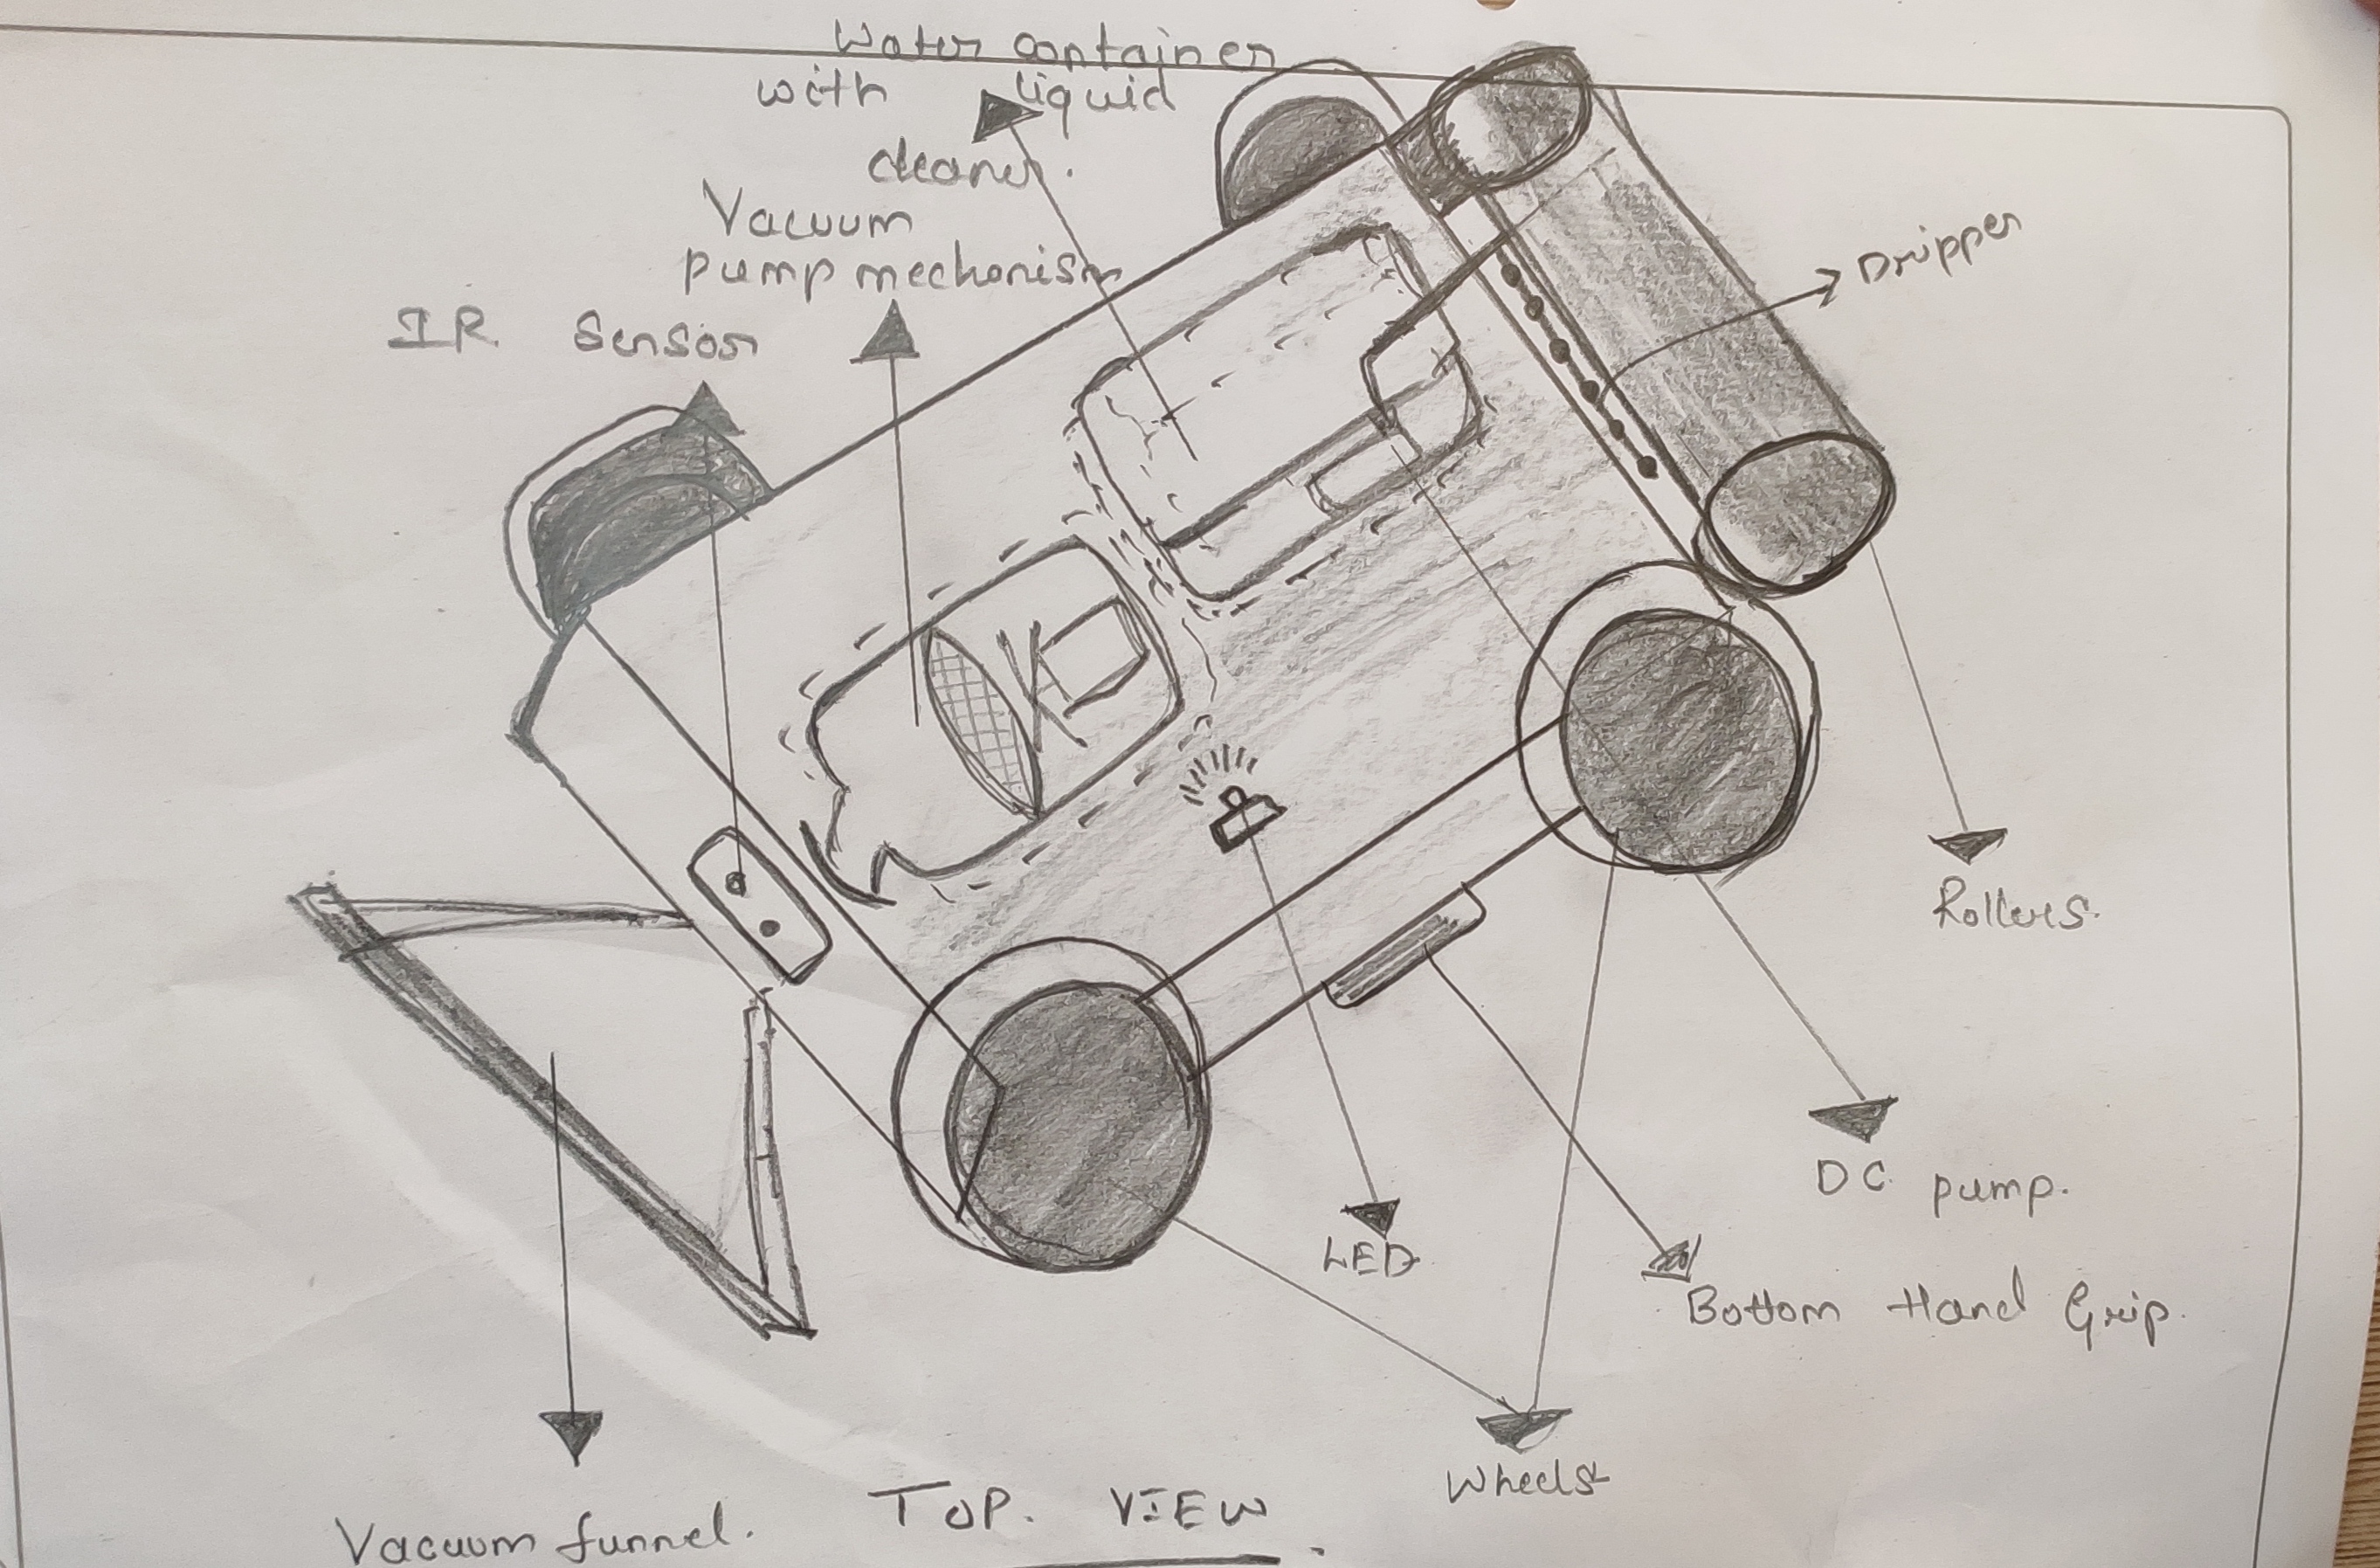 Water container
with liquid
cleaner.
Vacuum
pump mechanism
IR Sensor
Dripper
Rollers.
DC pump.
LED
Bottom Hand Grip.
Wheels
Vacuum funnel.
TOP. VIEW.